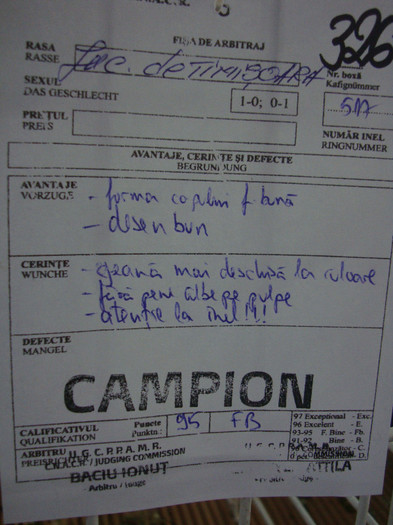 FIŞA DE ARBITRAJ
326
RASA
RASSE
Juc. de TIMIŞOARA
Nr. boxă
Kafignümmer
517
SEXUL
DAS GESCHLECHT
1-0; 0-1
PREŢUL
PREIS
NUMĂR INEL
RINGNUMMER
AVANTAJE, CERINŢE ŞI DEFECTE
BEGRUNDUNG
AVANTAJE
VORZUGE
- forma capului f. bună
- desen bun
CERINŢE
WUNCHE
- geană mai deschisă la culoare
- fără pene albe pe pulpe
- atenţie la inel!!!
DEFECTE
MANGEL
CAMPION
CALIFICATIVUL
QUALIFIKATION
Puncte
Punkta:
95
FB
97 Exceptional - Exc.
96 Excelent - E.
93-95 F. Bine - Fb.
91-92 Bine - B.
ARBITRU U.G.C.P.P.A.M.R.
JUDGING COMMISSION
BACIU IONUŢ
Arbitru / Judge
ATTILA